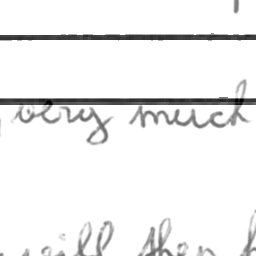 very much
will then